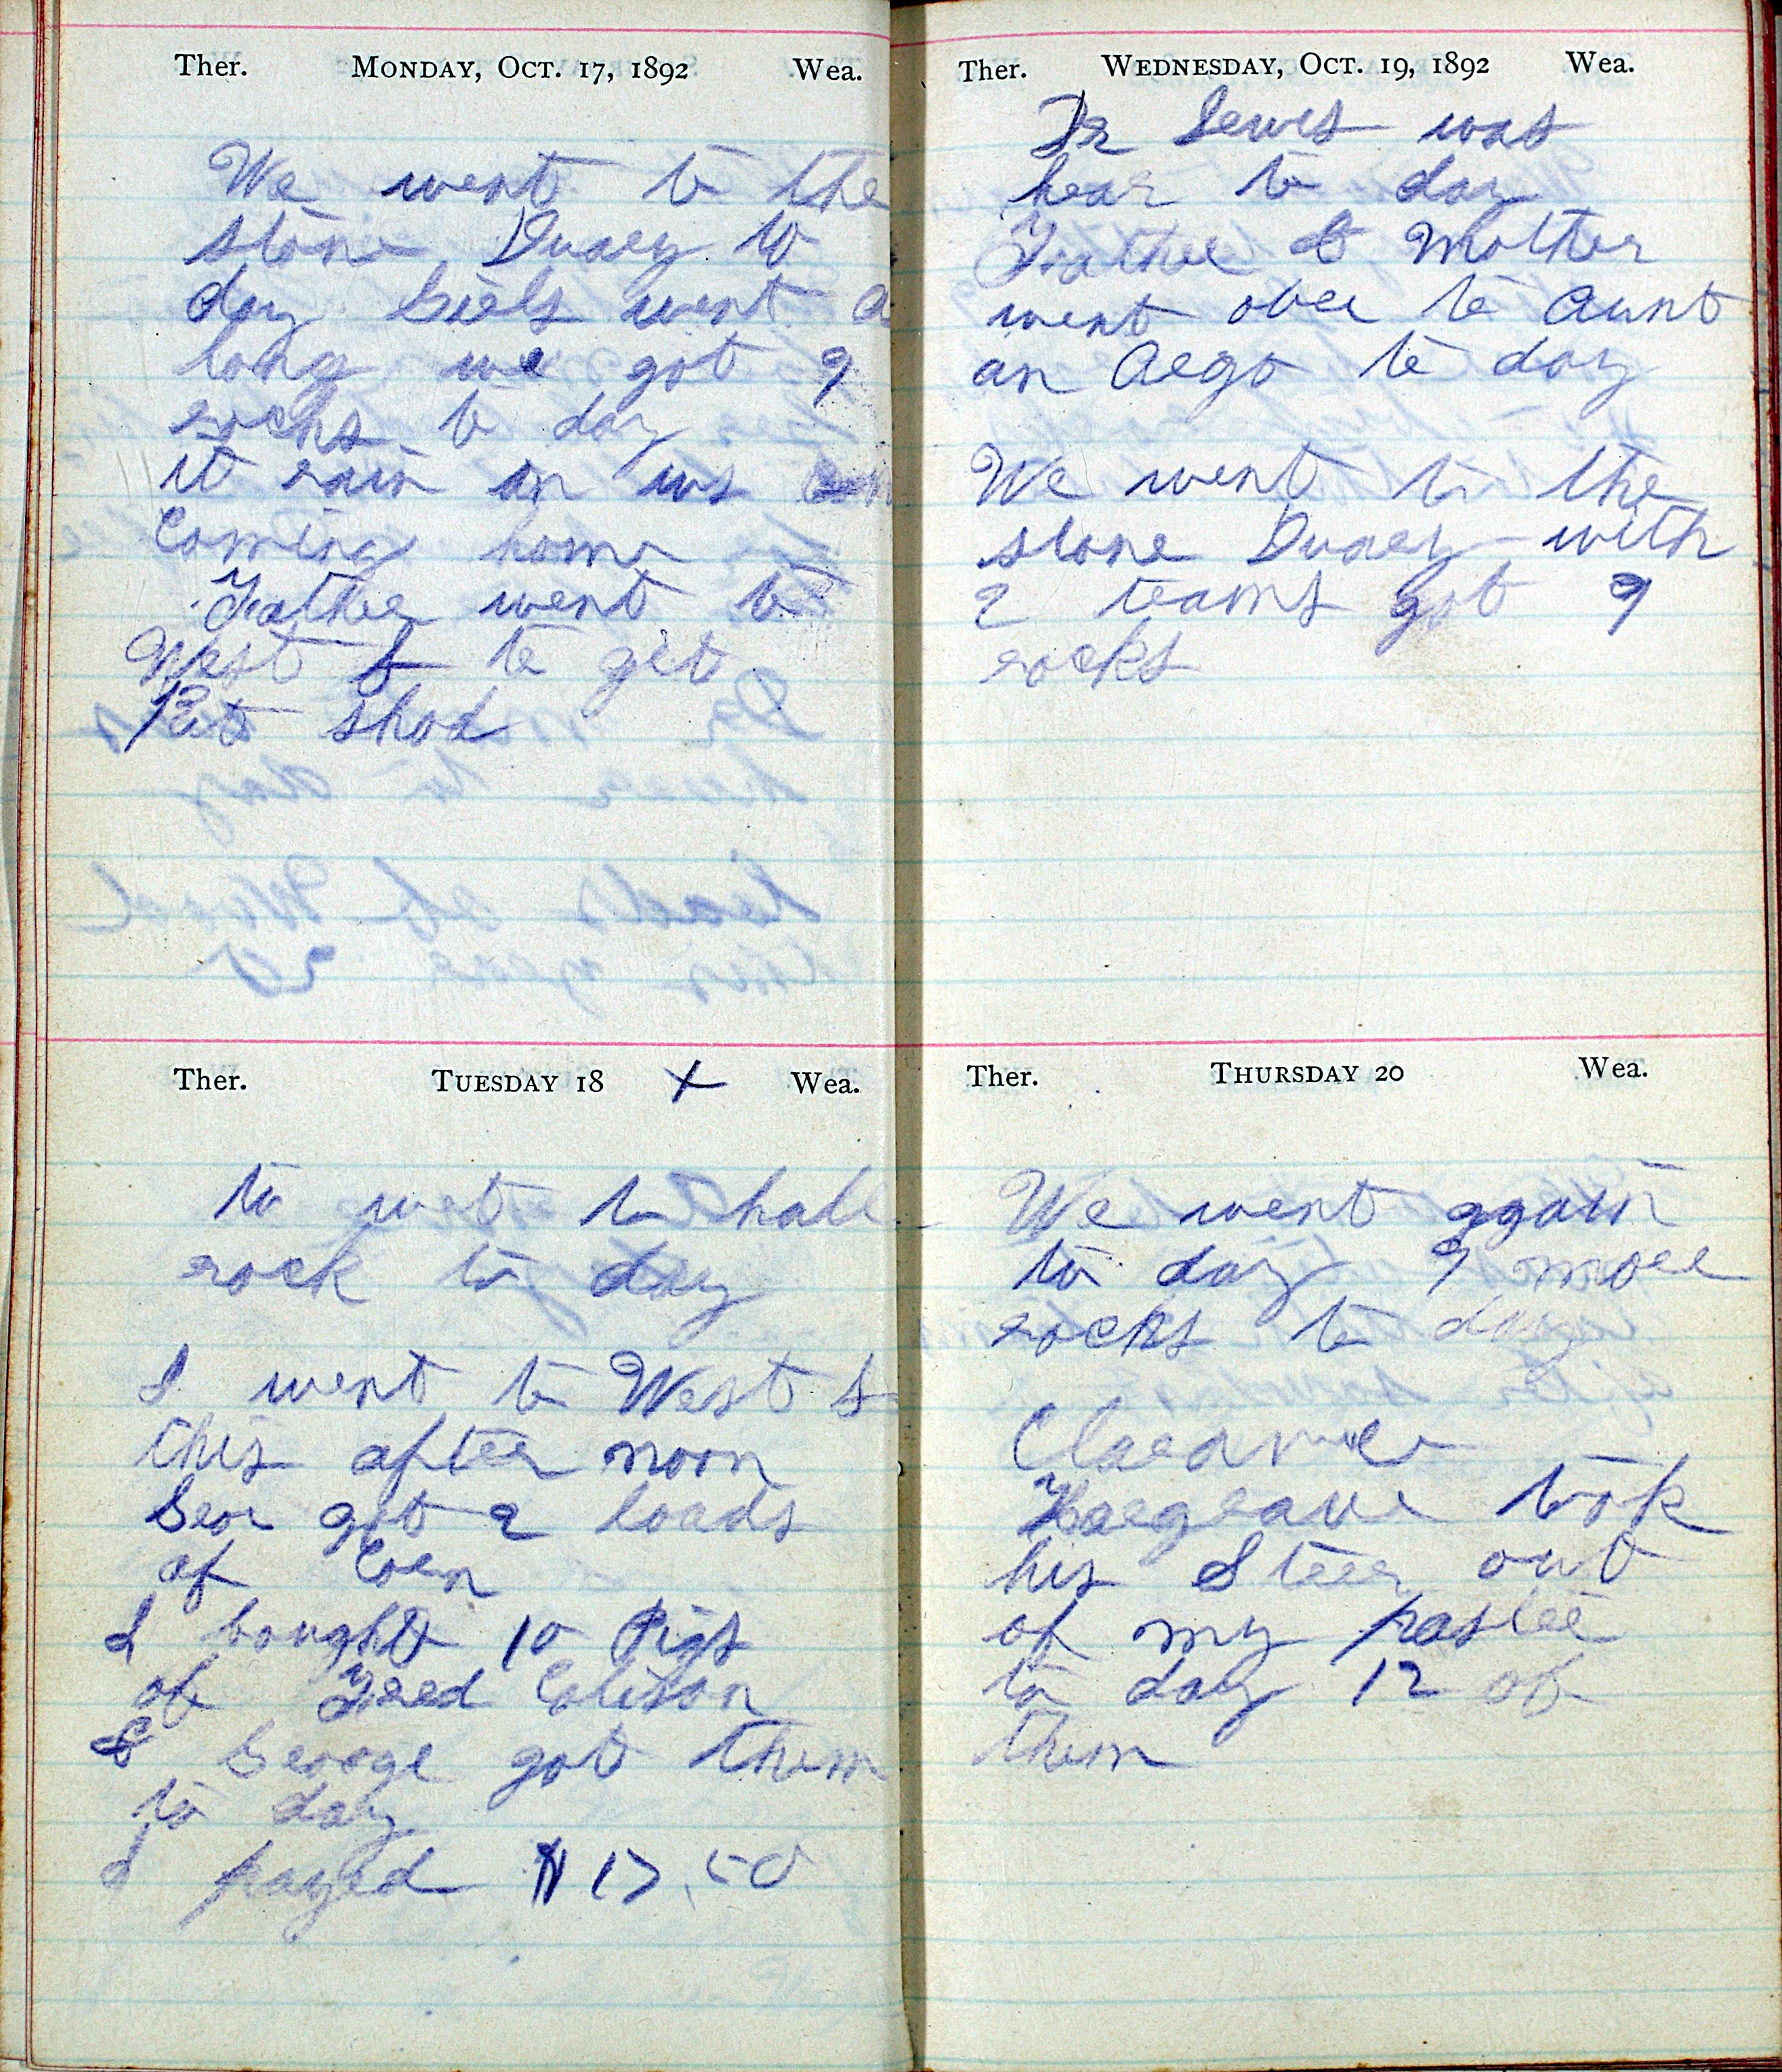 Ther. MONDAY, OCT. 17, 1892 Wea.
We went to the
stone Quarey to
day Girls went a
long we got 9
rocks to day
it rain on us
Coming home
Father went to
West L to get
Pet shod
Ther. TUESDAY 18 + Wea.
to wet to hall
rock to day
I went to West L
this after noon
Geor got 2 loads
of Corn
I bought 10 Pigs
of Fred Colison
& George got them
to day
I payed $17.50
Ther. WEDNESDAY, OCT. 19, 1892 Wea.
Dr Lewes was
hear to day
Father & Mother
went over to Aunt
an Argo to day
We went to the
stone Quarey with
2 teams got 9
rocks
Ther. THURSDAY 20 Wea.
We went again
to day 9 more
rocks to day
Clarance
Hargrave took
his Steers out
of my paster
to day 12 of
them